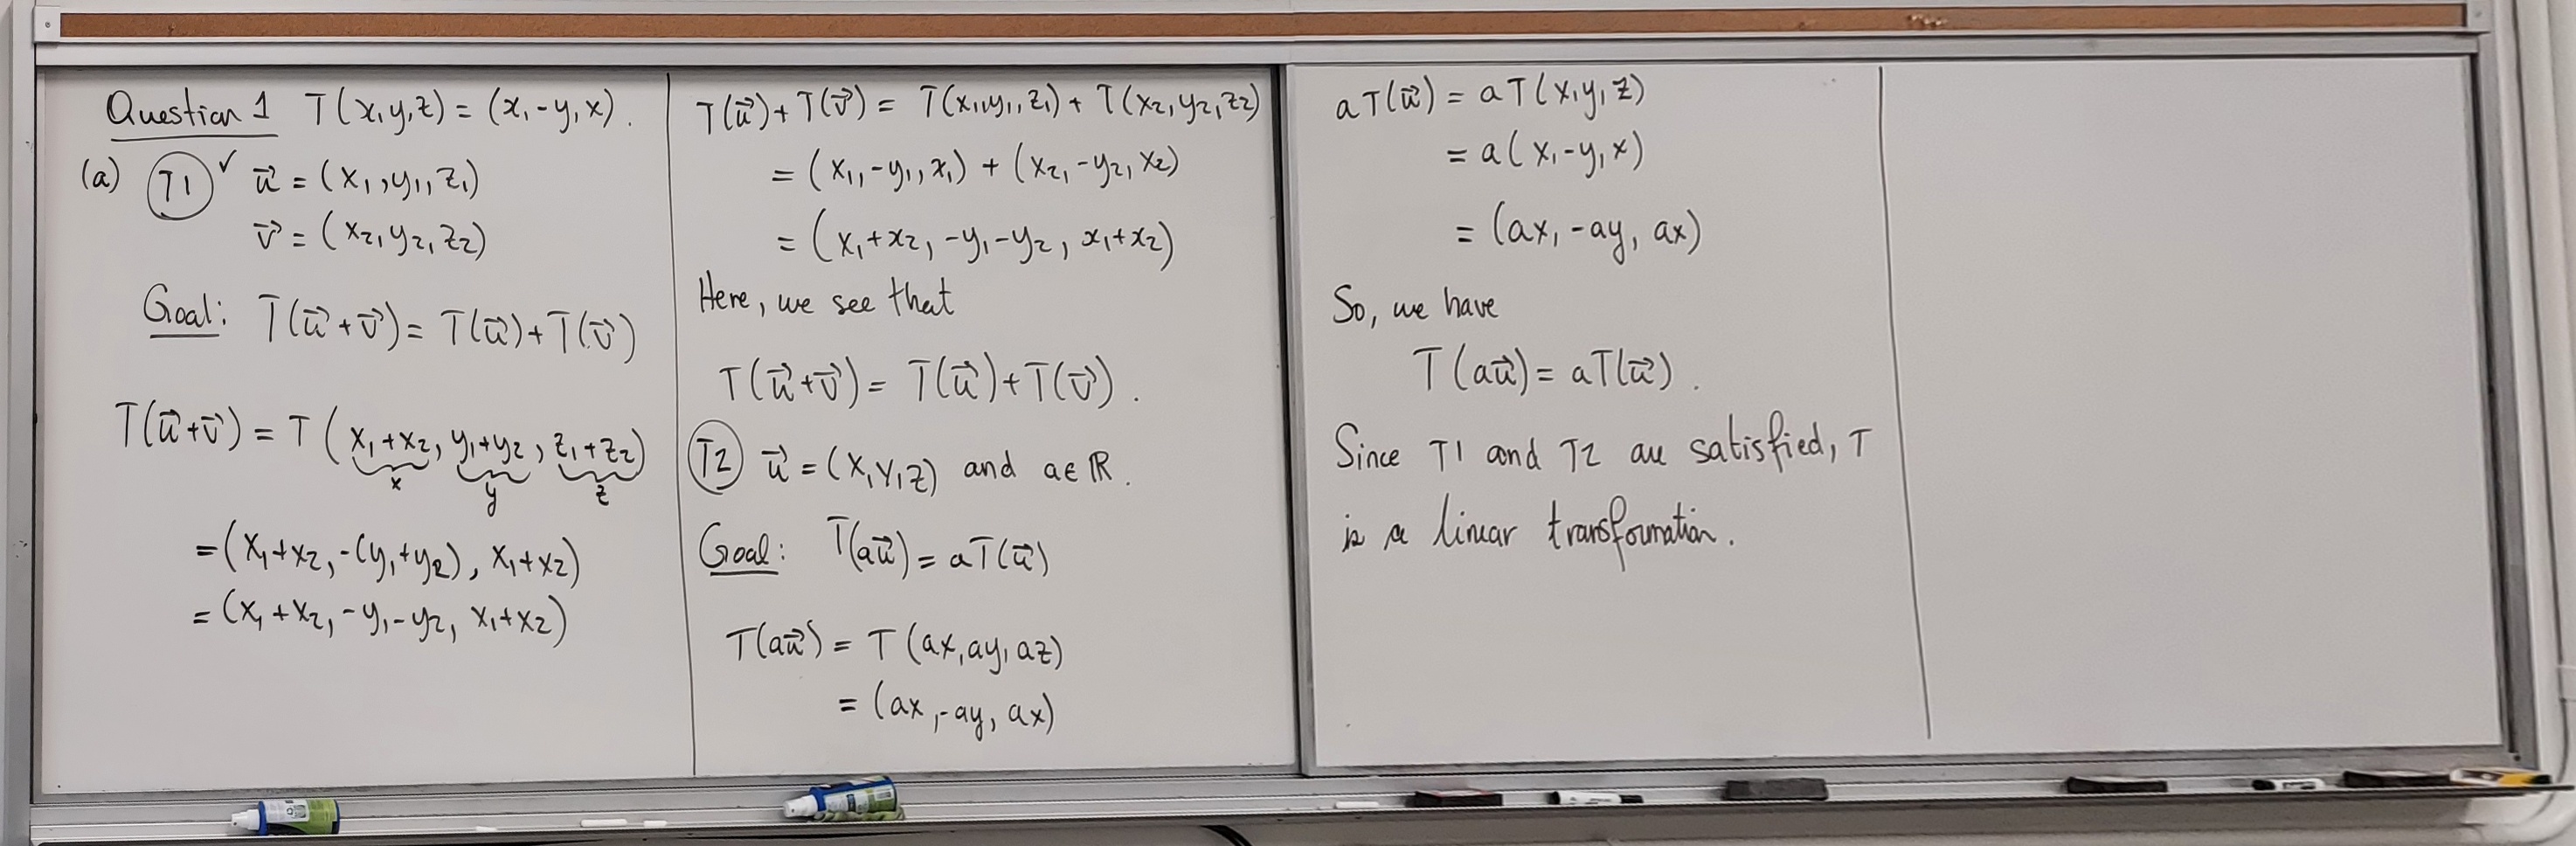 Question 1 T(x,y,z) = (x,-y,x).
(a) T1 ✓ u⃗ = (x₁,y₁,z₁)
v⃗ = (x₂,y₂,z₂)
Goal: T(u⃗+v⃗) = T(u⃗)+T(v⃗)
T(u⃗+v⃗) = T(x₁+x₂, y₁+y₂, z₁+z₂)
x y z
= (x₁+x₂, -(y₁+y₂), x₁+x₂)
= (x₁+x₂, -y₁-y₂, x₁+x₂)
T(u⃗)+T(v⃗) = T(x₁,y₁,z₁) + T(x₂,y₂,z₂)
= (x₁,-y₁,x₁) + (x₂,-y₂,x₂)
= (x₁+x₂, -y₁-y₂, x₁+x₂)
Here, we see that
T(u⃗+v⃗) = T(u⃗)+T(v⃗).
T2 u⃗ = (x,y,z) and a∈ℝ.
Goal: T(au⃗) = aT(u⃗)
T(au⃗) = T(ax,ay,az)
= (ax,-ay, ax)
aT(u⃗) = aT(x,y,z)
= a(x,-y,x)
= (ax,-ay, ax)
So, we have
T(au⃗) = aT(u⃗).
Since T1 and T2 are satisfied, T
is a linear transformation.